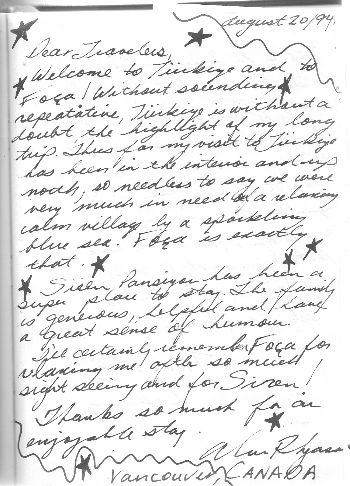 august 20/94.
Dear Travelers,
Welcome to Türkiye and to
Foça! Without sounding
repeatative, Türkiye is without a
doubt the highlight of my long
trip. Thus far my visit to Türkiye
has been in the interior and up
north, so needless to say we were
very much in need of a relaxing
calm village by a sparkling
blue sea! Foça is exactly
that.
Siren Pansiyon has been a
super place to stay. The family
is generious, helpful and have
a great sense of humour.
I'll certainly remember Foça for
relaxing me after so much
sight seeing and for Siren!
Thanks so much for an
enjoyable stay.
VANCOUVER, CANADA